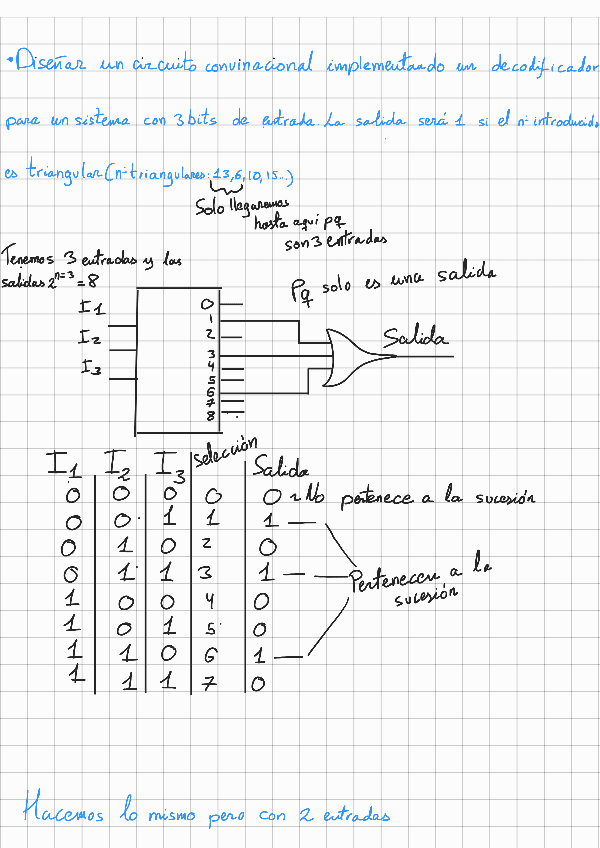 • Diseñar un circuito convinacional implementando un decodificador
para un sistema con 3 bits de entrada. La salida será 1 si el nº introducido
es triangular (nº triangulares: 1,3,6,10,15...)
Solo llegaremos
hasta aqui pq
son 3 entradas
Tenemos 3 entradas y las
salidas 2^n=3 = 8
Pq solo es una salida
I1
I2
I3
0
1
2
3
4
5
6
7
8
Salida
I1 I2 I3 Selección Salida
0 0 0 0 0 ~ No pertenece a la sucesión
0 0 1 1 1
0 1 0 2 0
0 1 1 3 1
Pertenecen a la
sucesión
1 0 0 4 0
1 0 1 5 0
1 1 0 6 1
1 1 1 7 0
Hacemos lo mismo pero con 2 entradas